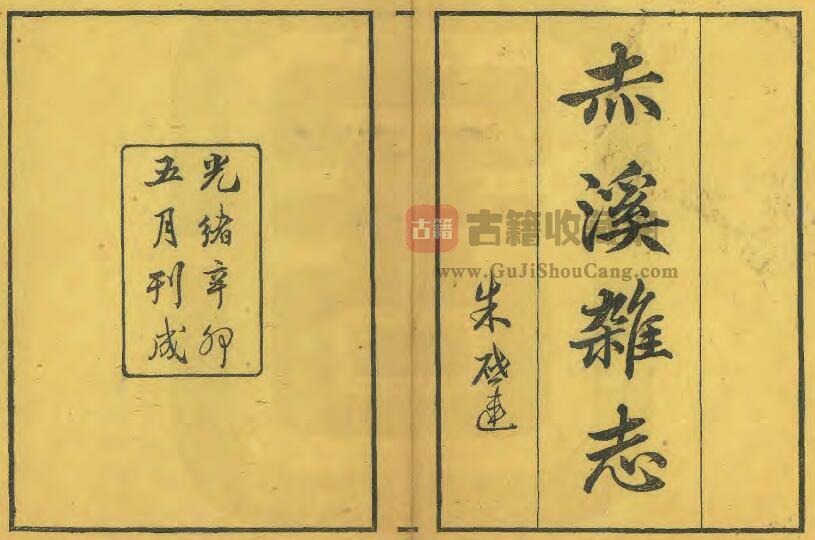 赤溪雜志
朱啟連
光緒辛卯
五月刊成
古籍 古籍收
www.GuJiShouCang.com